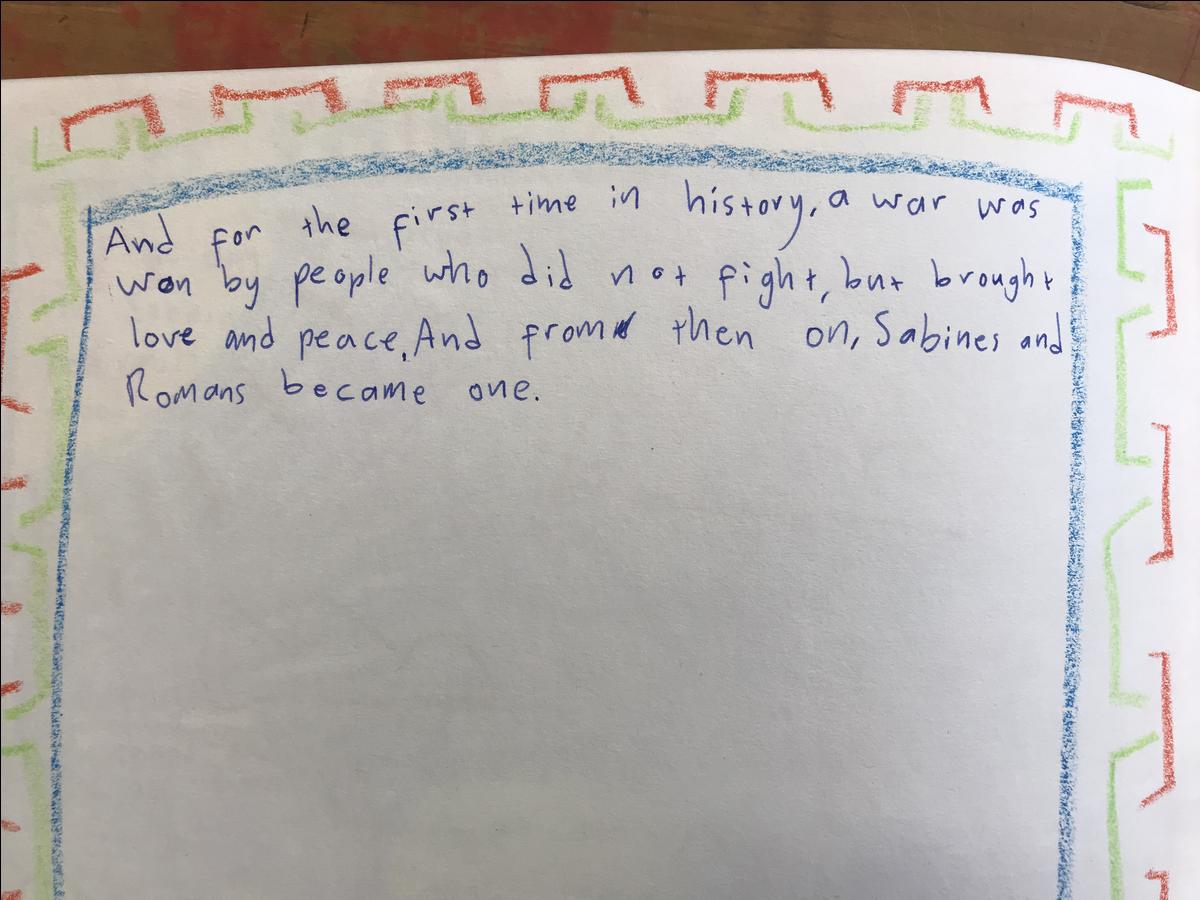 And for the first time in history, a war was
won by people who did not fight, but brought
love and peace. And from then on, Sabines and
Romans became one.